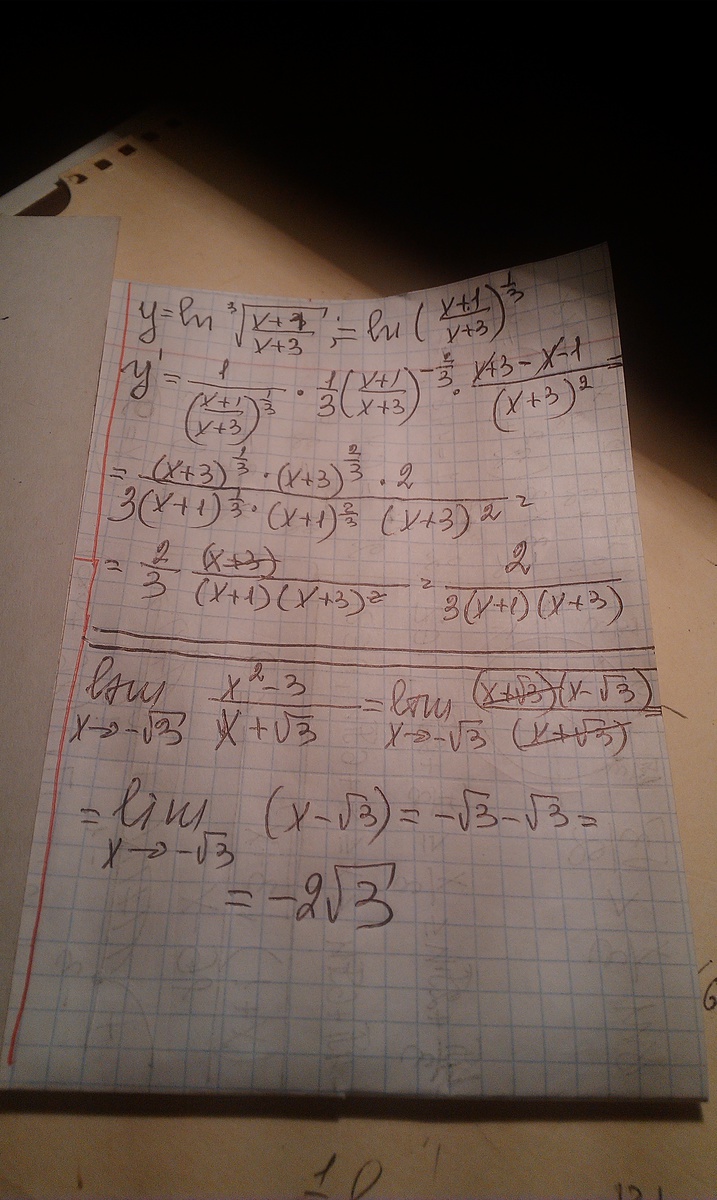 y = ln ∛((x+1)/(x+3)) ; = ln ((x+1)/(x+3))^(1/3)
y' = 1/((x+1)/(x+3))^(1/3) · 1/3 ((x+1)/(x+3))^(-2/3) · (x+3-x-1)/(x+3)^2 =
= ((x+3)^(1/3) · (x+3)^(2/3) · 2)/(3(x+1)^(1/3) · (x+1)^(2/3) (x+3)^2) =
= 2/3 (x+3)/((x+1)(x+3)^2) = 2/(3(x+1)(x+3))
lim x→-√3 (x^2-3)/(x+√3) = lim x→-√3 ((x+√3)(x-√3))/(x+√3) =
= lim x→-√3 (x-√3) = -√3-√3 =
= -2√3